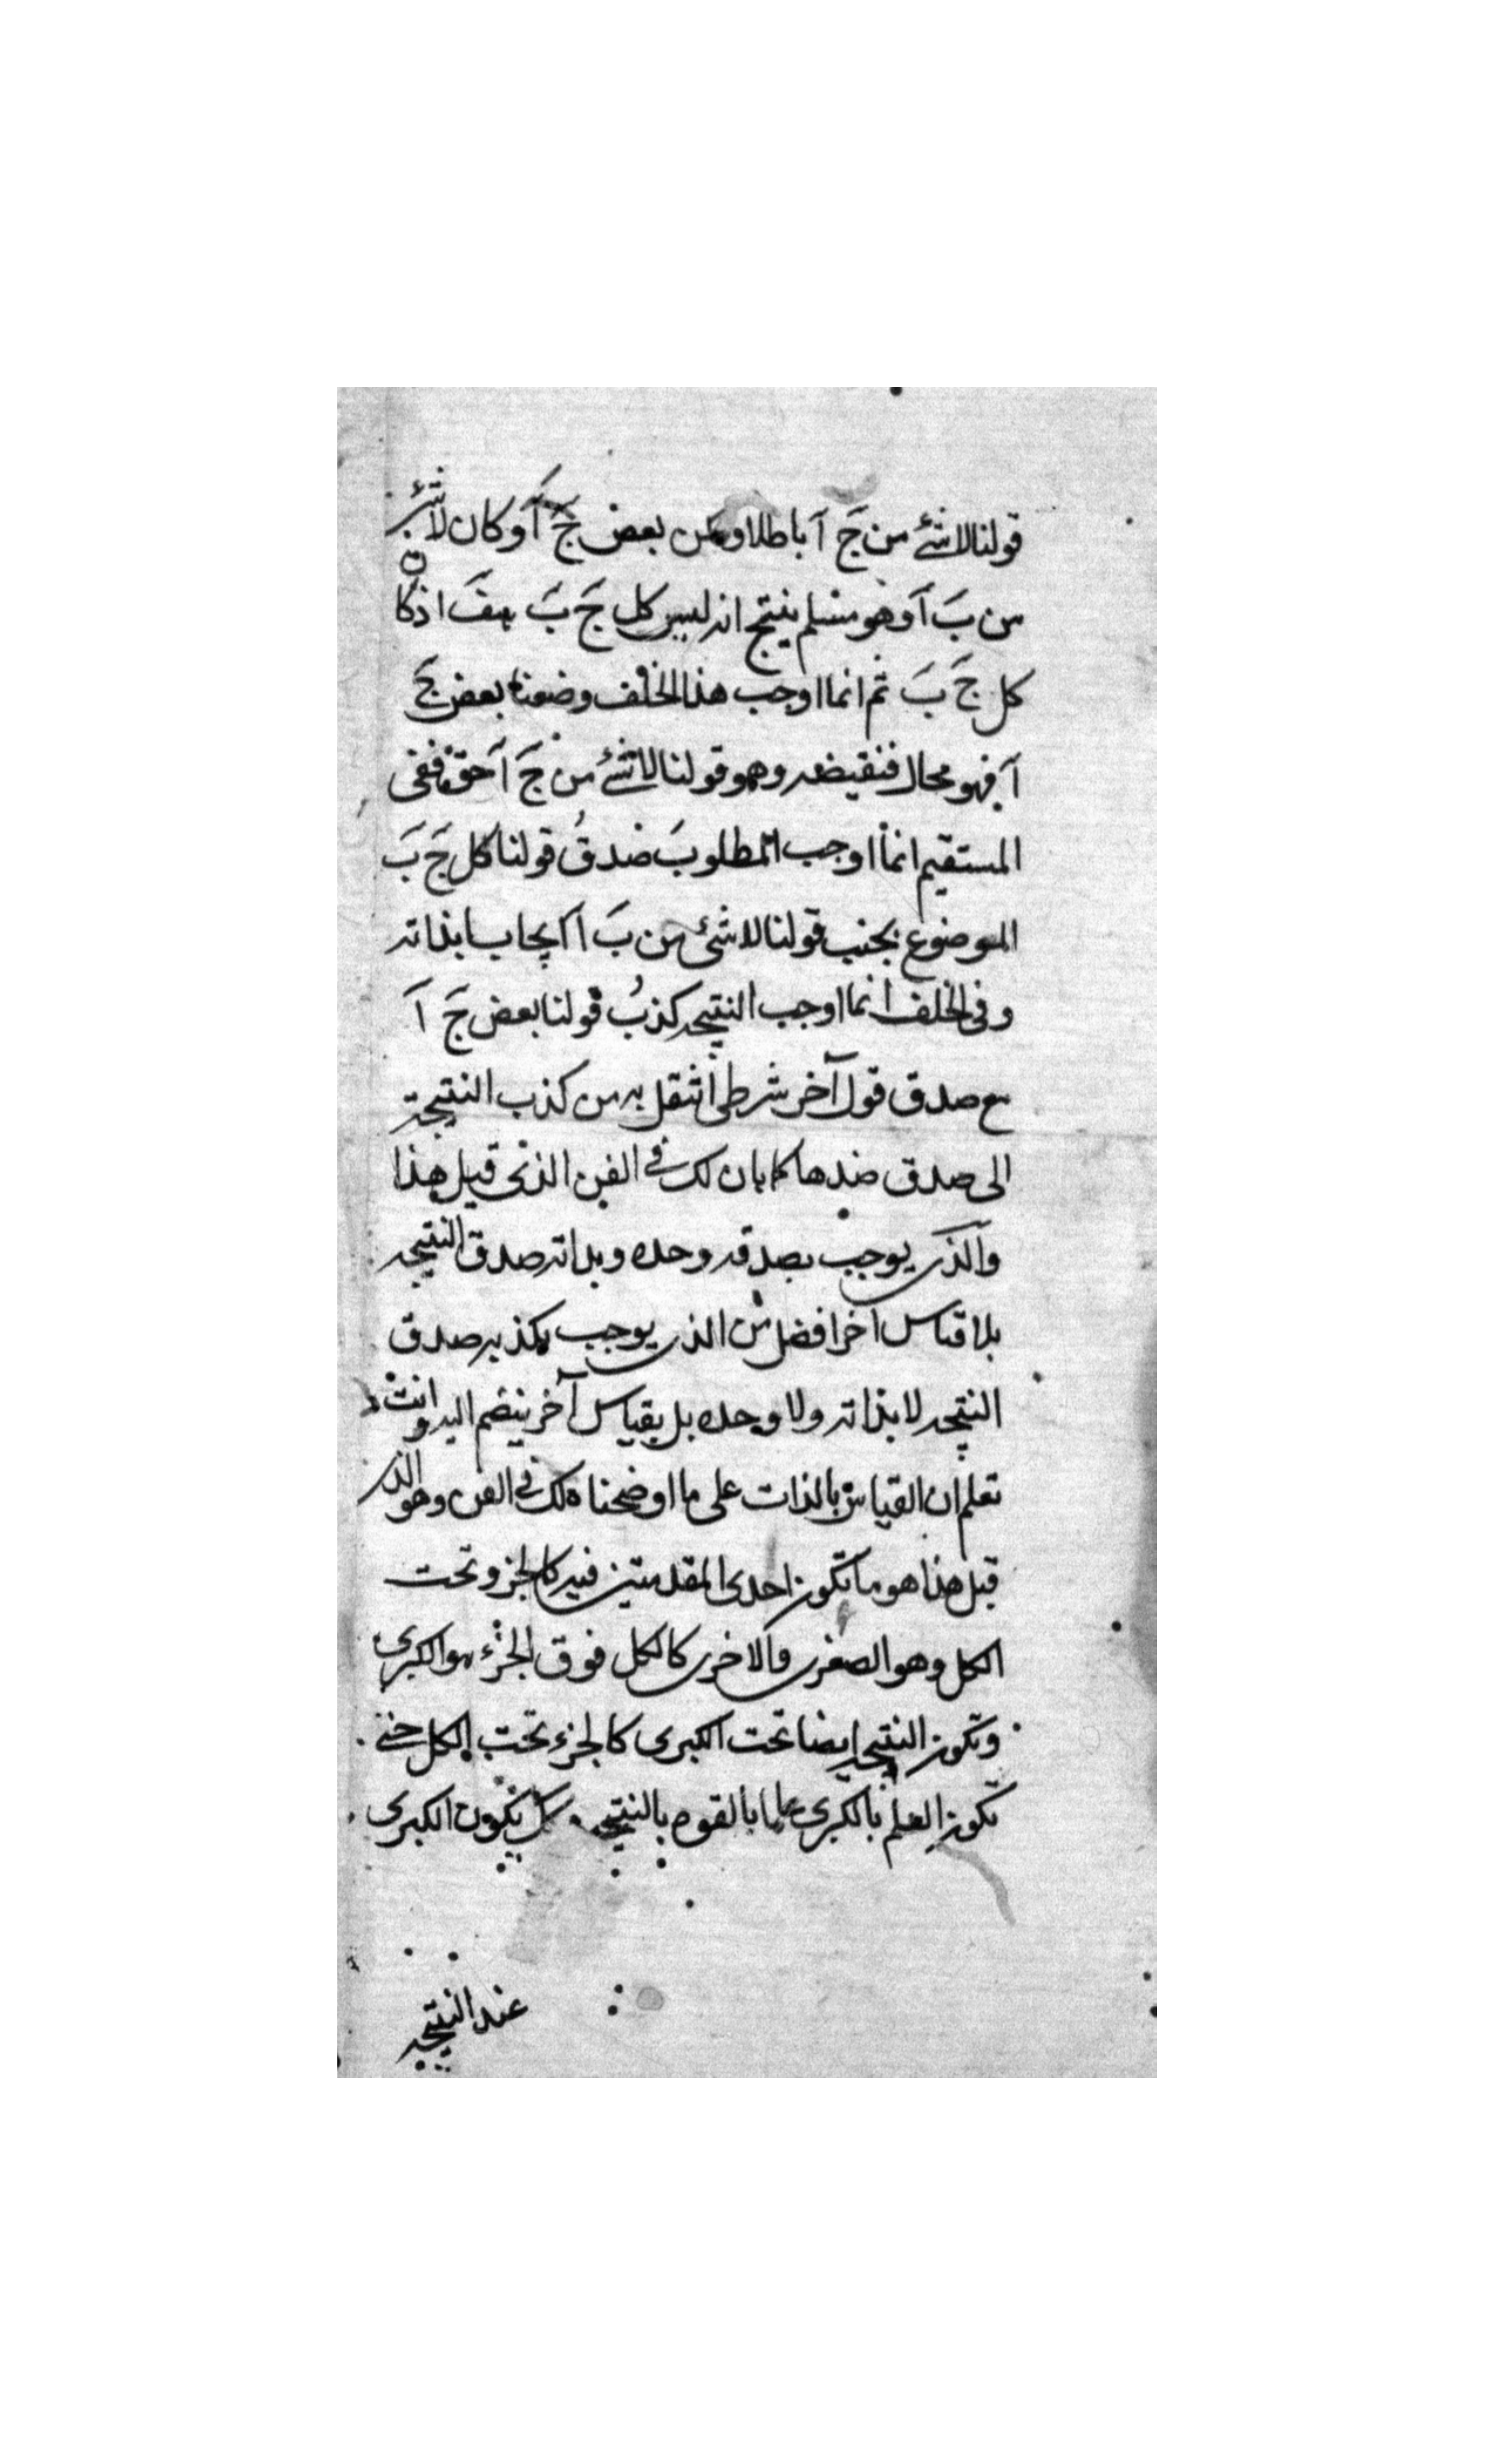 قولنا لا شئ من جَ آ باطلا وليكن بعض جَ آ وكان لا شئ
من بَ آ وهو مسلم ينتج انه ليس كل جَ بَ هف اذ كان
كل جَ بَ ثم انما اوجب هذا الخلف وضعنا بعض جَ
آ فهو محال فنقيضه وهو قولنا لا شئ من جَ آ حق ففى
المستقيم انما اوجب المطلوبَ صدقُ قولنا كل جَ بَ
الموضوع بجنب قولنا لا شئ من بَ آ ايجابا بذاته
وفى الخلف انما اوجب النتيجه كذبُ قولنا بعض جَ آ
مع صدق قول آخر شرطى انتقل به من كذب النتيجة
الى صدق ضدها كما بان لك فى الفن الذى قبل هذا
والذى يوجب بصدقه وحده وبذاته صدق النتيجه
بلا قياس اخر افضل من الذى يوجب بكذبه صدق
النتيجه لا بذاته ولا وحده بل بقياس آخر ينضم اليه وانت
تعلم ان القياس بالذات على ما اوضحناه لك فى الفن وهو الذى
قبل هذا هو ما تكون احدى المقدمتين فيه كالجزو تحت
الكل وهو الصغرى والاخرى كالكل فوق الجزء هو الكبرى
وتكون النتيجه ايضا تحت الكبرى كالجزء تحت الكل حتى
تكون العلم بالكبرى علما بالقوه بالنتيجه كل يكون الكبرى
عند النتيجه